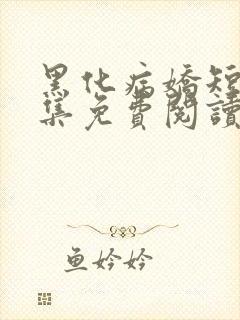 黑化病嬌短
集免費閱讀
鱼妗妗